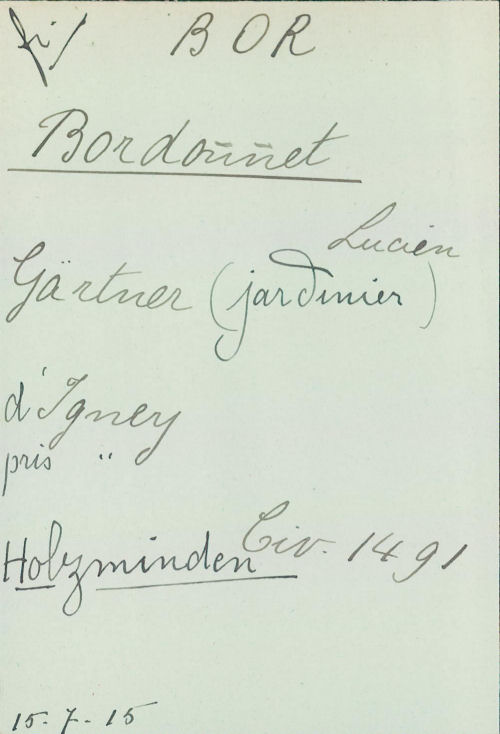 BOR
Bordon̄n̄et
Lucien
Gärtner (jardinier)
d'Igney
pris "
Holzminden Civ. 1491
15-7-15